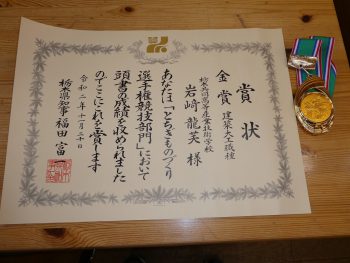 賞状
金賞 建築大工職種
栃木県立県央産業技術学校
岩﨑龍芙 様
あなたは「とちぎものづくり
選手権競技部門」において
頭書の成績を収められました
のでここにこれを賞します
令和二年十一月二十日
栃木県知事 福田富一